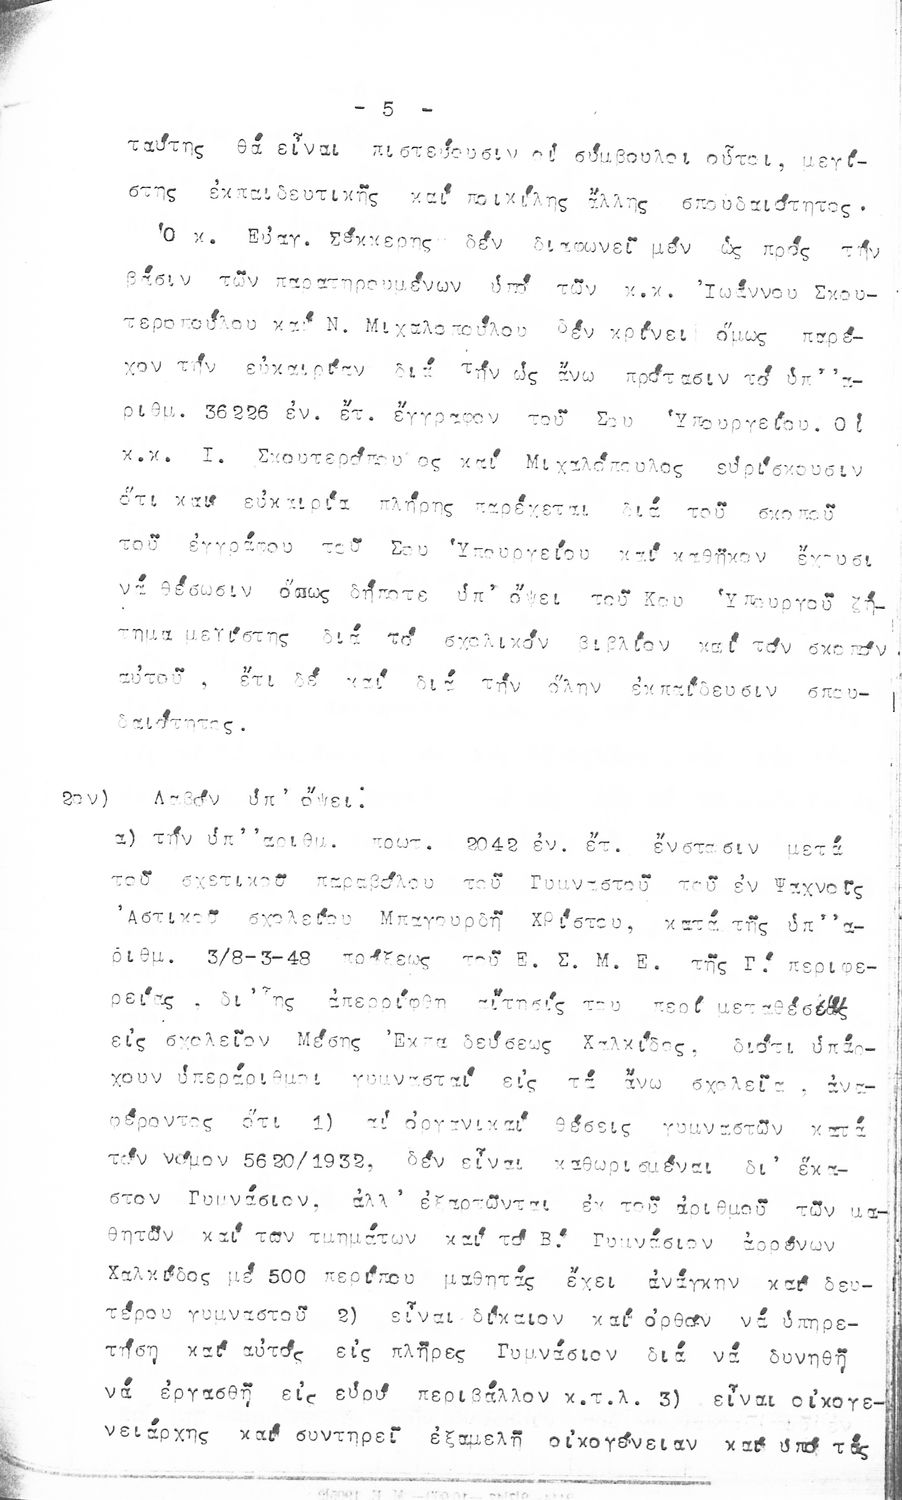 - 5 -
ταύτης θά εἶναι πιστεύουσιν οἱ σύμβουλοι οὗτοι, μεγί-
στης ἐκπαιδευτικῆς καί ποικίλης ἄλλης σπουδαιότητος.
Ὁ κ. Εὐαγ. Σέκκερης δέν διαφωνεῖ μέν ὡς πρός τήν
βάσιν τῶν παρατηρουμένων ὑπό τῶν κ.κ. Ἰωάννου Σκου-
τεροπούλου καί Ν. Μιχαλοπούλου δέν κρίνει ὅμως παρέ-
χον τήν εὐκαιρίαν διά τήν ὡς ἄνω πρότασιν τό ὑπ''ἀ-
ριθμ. 36226 ἐν. ἔτ. ἔγγραφον τοῦ Σου Ὑπουργείου. Οἱ
κ.κ. Ι. Σκουτερόπου ος καί Μιχαλόπουλος εὑρίσκουσιν
ὅτι καί εὐκαιρία πλήρης παρέχεται διά τοῦ σκοποῦ
τοῦ ἐγγράφου τοῦ Σου Ὑπουργείου καί καθῆκον ἔχουσι
νά θέσωσιν ὅπως δήποτε ὑπ' ὄψει τοῦ Κου Ὑπουργοῦ ζή-
τημα μεγίστης διά τό σχολικόν βιβλίον καί τόν σκοπόν
αὐτοῦ, ἔτι δέ καί διά τήν ὅλην ἐκπαίδευσιν σπου-
δαιότητος.
2ον) Λαβόν ὑπ' ὄψει:
α) τήν ὑπ''ἀριθμ. πρωτ. 2042 ἐν. ἔτ. ἔνστασιν μετά
τοῦ σχετικοῦ παραβόλου τοῦ Γυμναστοῦ τοῦ ἐν Ψαχνοῖς
Ἀστικοῦ σχολείου Μπαγουρδῆ Χρίστου, κατά τῆς ὑπ''ἀ-
ριθμ. 3/8-3-48 πράξεως τοῦ Ε. Σ. Μ. Ε. τῆς Γ.' περιφε-
ρείας, δι' ἧς ἀπερρίφθη αἴτησίς του περί μεταθέσεως
εἰς σχολεῖον Μέσης Ἐκπα δεύσεως Χαλκίδος, διότι ὑπάρ-
χουν ὑπεράριθμοι γυμνασταί εἰς τά ἄνω σχολεῖα, ἀνα-
φέροντος ὅτι 1) αἱ ὀργανικαί θέσεις γυμναστῶν κατά
τόν νόμον 5620/1932, δέν εἶναι καθωρισμέναι δι' ἕκα-
στον Γυμνάσιον, ἀλλ' ἐξαρτῶνται ἐκ τοῦ ἀριθμοῦ τῶν μα-
θητῶν καί τῶν τμημάτων καί τό Β.' Γυμνάσιον ἀρρένων
Χαλκίδος μέ 500 περίπου μαθητάς ἔχει ἀνάγκην καί δευ-
τέρου γυμναστοῦ 2) εἶναι δίκαιον καί ὀρθόν νά ὑπηρε-
τήσῃ καί αὐτός εἰς πλῆρες Γυμνάσιον διά νά δυνηθῇ
νά ἐργασθῇ εἰς εὐρύ περιβάλλον κ.τ.λ. 3) εἶναι οἰκογε-
νειάρχης καί συντηρεῖ ἑξαμελῆ οἰκογένειαν καί ὑπό τάς